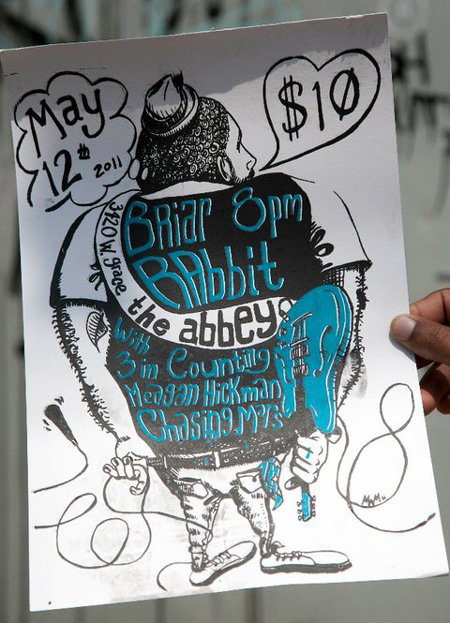 May
12th
2011
$10
3420 W. grace
Briar 8pm
RAbbit
the abbey
With
3 in Counting
Meagan Hickman
Chasing Mars